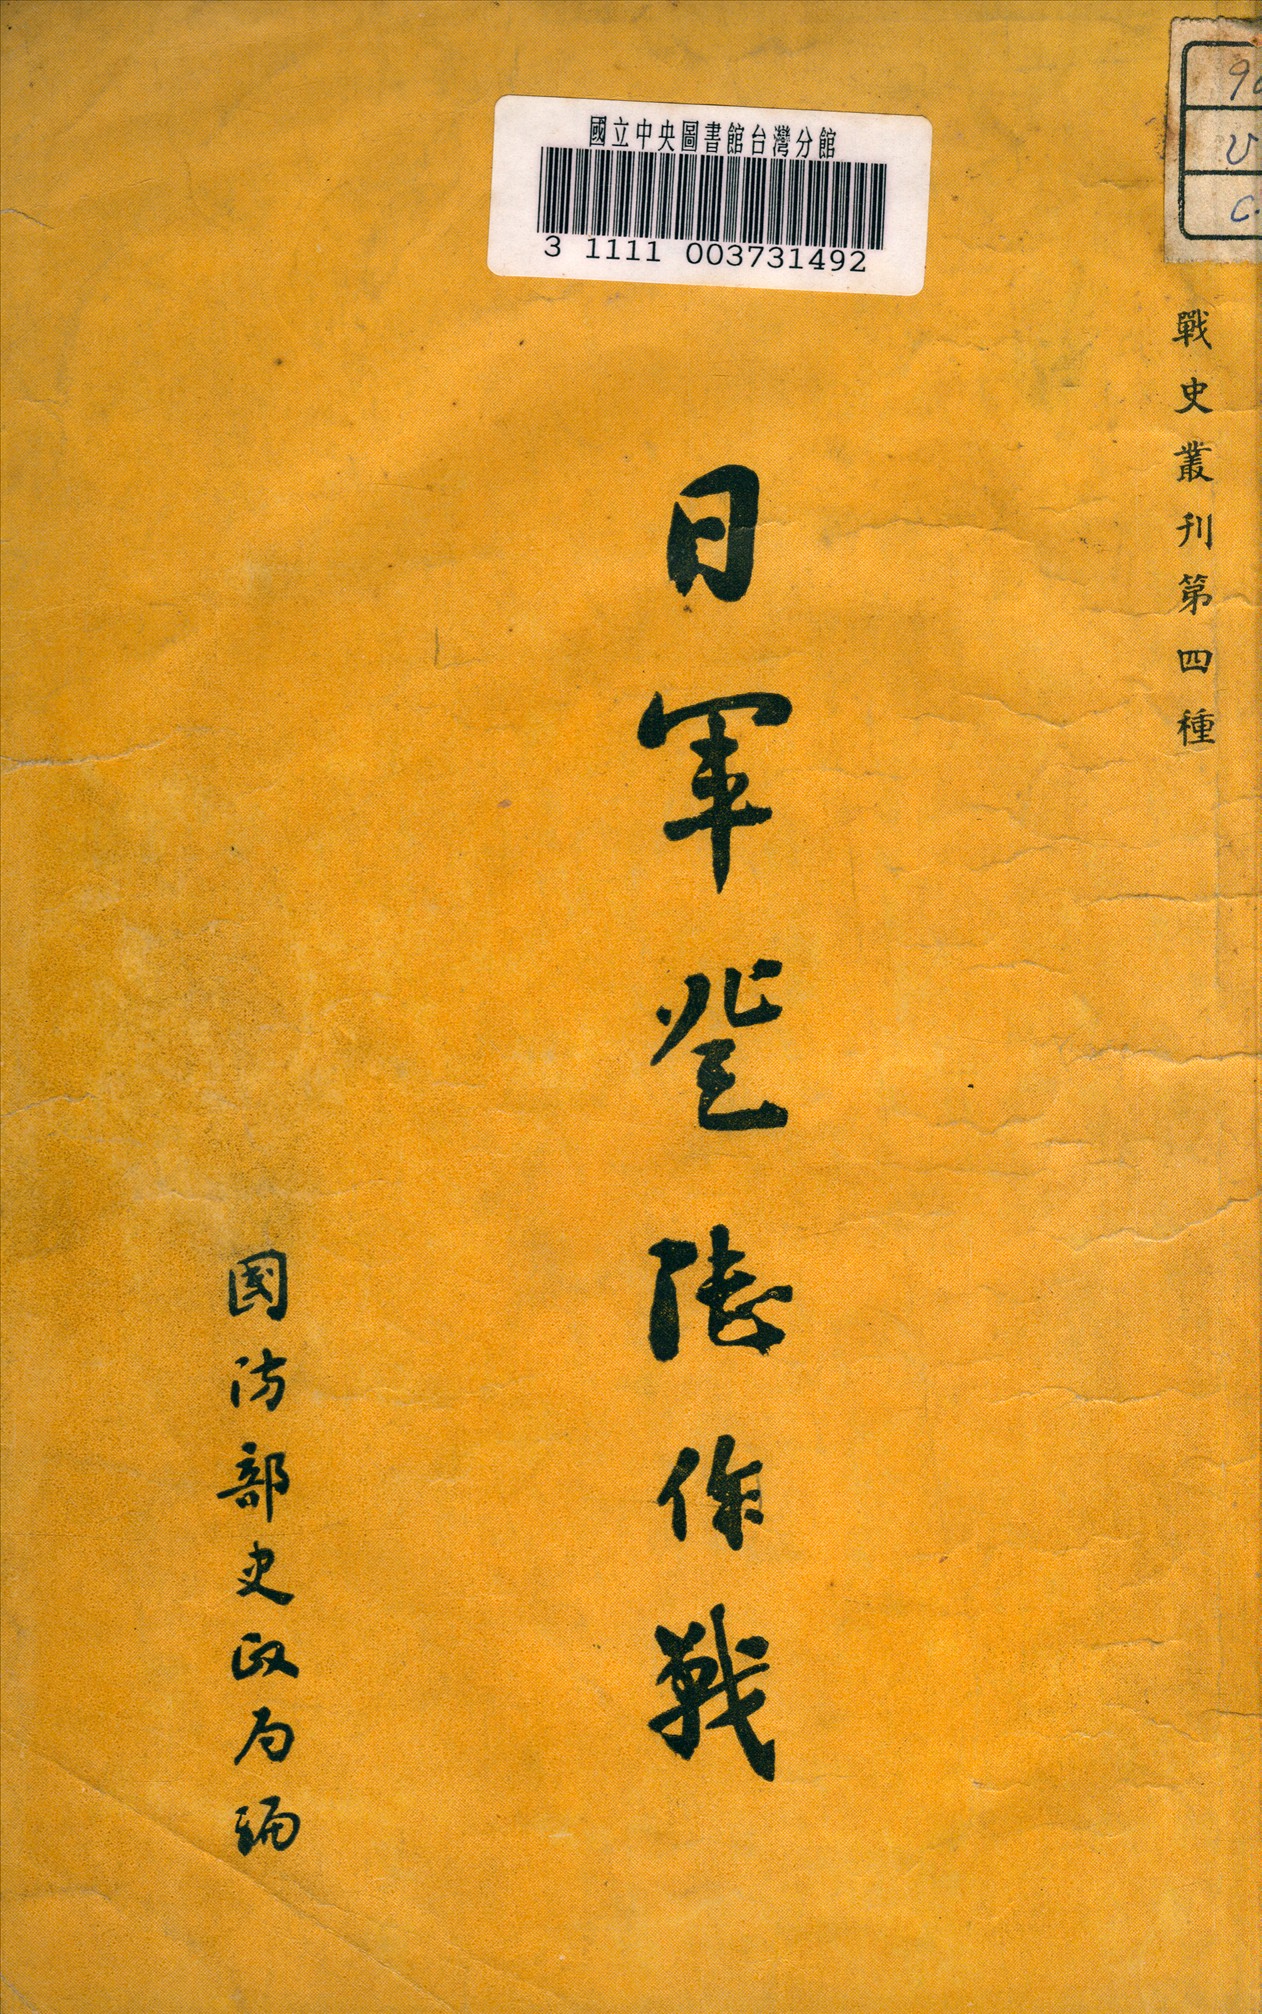 國立中央圖書館台灣分館
3 1111 003731492
戰史叢刊第四種
日軍登陸作戰
國防部史政局編